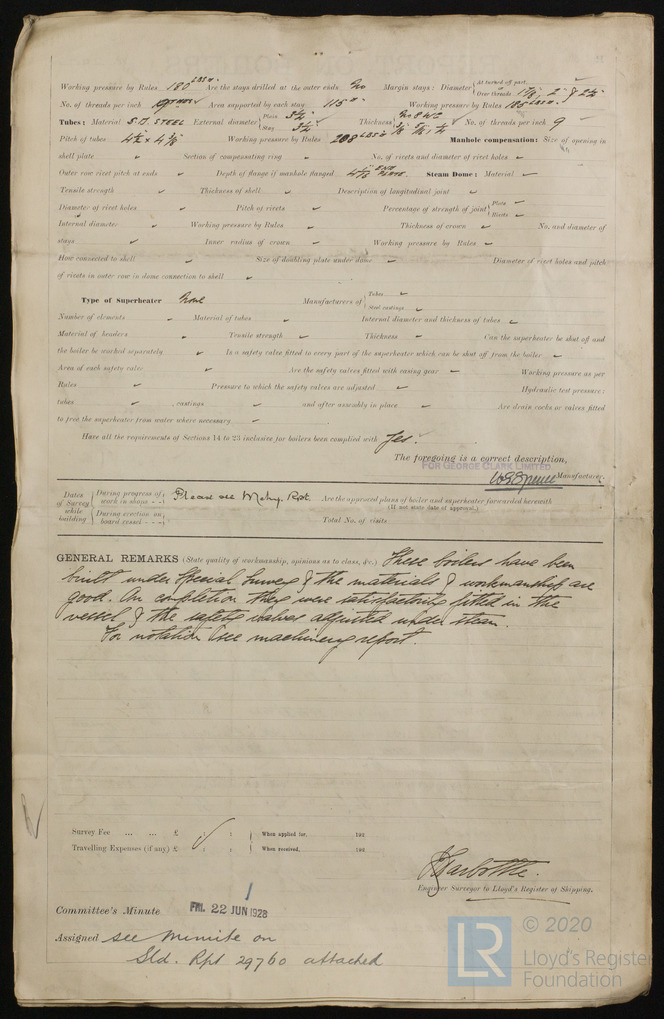 Working pressure by Rules 180 LBS □" Are the stays drilled at the outer ends No Margin stays: Diameter { At turned off part, Over threads 1 7/8", 2" & 2 1/4"
No. of threads per inch Area supported by each stay 115 □" Working pressure by Rules 185 LBS □"
Tubes: Material S.D. STEEL External diameter { Plain 3 1/4" Stay 3 1/4" Thickness { No 8 WG 5/16, 1/4 No. of threads per inch 9
Pitch of tubes 4 1/2 x 4 3/8 Working pressure by Rules 208 LBS □" Manhole compensation: Size of opening in
shell plate Section of compensating ring No. of rivets and diameter of rivet holes
Outer row rivet pitch at ends Depth of flange if manhole flanged END PLATE Steam Dome: Material
Tensile strength Thickness of shell Description of longitudinal joint
Diameter of rivet holes Pitch of rivets Percentage of strength of joint { Plate Rivets
Internal diameter Working pressure by Rules Thickness of crown No. and diameter of
stays Inner radius of crown Working pressure by Rules
How connected to shell Size of doubling plate under dome Diameter of rivet holes and pitch
of rivets in outer row in dome connection to shell
Type of Superheater None Manufacturers of { Tubes Steel castings
Number of elements Material of tubes Internal diameter and thickness of tubes
Material of headers Tensile strength Thickness Can the superheater be shut off and
the boiler be worked separately Is a safety valve fitted to every part of the superheater which can be shut off from the boiler
Area of each safety valve Are the safety valves fitted with easing gear Working pressure as per
Rules Pressure to which the safety valves are adjusted Hydraulic test pressure:
tubes castings and after assembly in place Are drain cocks or valves fitted
to free the superheater from water where necessary
Have all the requirements of Sections 14 to 23 inclusive for boilers been complied with Yes.
The foregoing is a correct description,
FOR GEORGE CLARK LIMITED.
Manufacturer.
Dates of Survey while building { During progress of work in shops - - Please see Mchy. Rpt. Are the approved plans of boiler and superheater forwarded herewith
(If not state date of approval.)
During erection on board vessel - - - Total No. of visits
GENERAL REMARKS (State quality of workmanship, opinions as to class, &c.) These boilers have been
built under Special Survey & the materials & workmanship are
good. On completion they were satisfactorily fitted in the
vessel & the safety valves adjusted under steam.
For notation see machinery report.
Survey Fee ... ... £ : : When applied for, 192
Travelling Expenses (if any) £ : : When received, 192
Engineer Surveyor to Lloyd's Register of Shipping.
Committee's Minute FRI. 22 JUN 1928
Assigned see minute on
Sld. Rpt 29760 attached
LR © 2020
Lloyd's Register
Foundation